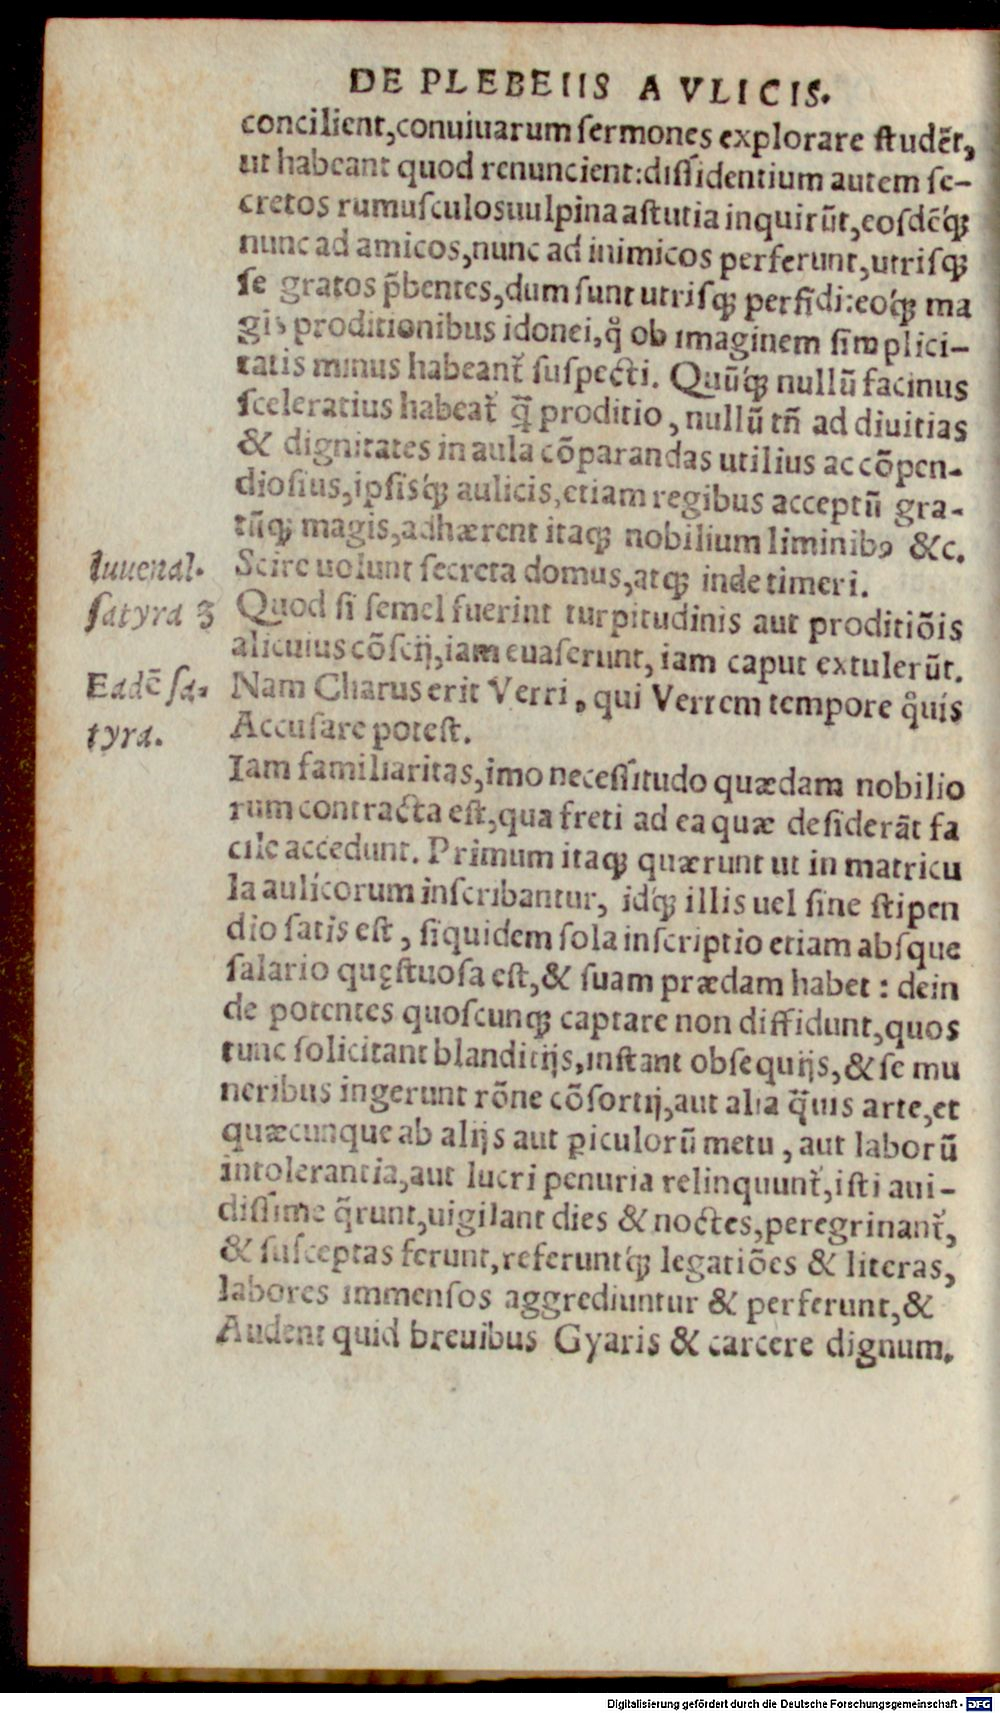 DE PLEBEIIS AVLICIS.
concilient,conuiuarum sermones explorare studēt,
ut habeant quod renuncient:dissidentium autem se-
cretos rumusculos uulpina astutia inquirūt,eosdēq́;
nunc ad amicos,nunc ad inimicos perferunt,utrisq;
se gratos p̄bentes,dum sunt utrisq; perfidi:eoq́; ma
gis proditionibus idonei,q̊ ob imaginem simplici-
tatis minus habeant᷑ suspecti. Quūq́; nullū facinus
sceleratius habeat᷑ q̄ proditio, nullū tñ ad diuitias
& dignitates in aula cōparandas utilius ac cōpen-
diosius,ipsisq́; aulicis,etiam regibus acceptū gra-
tūq; magis,adhærent itaq; nobilium liminibꝰ &c.
Iuuenal. Scire uolunt secreta domus,atq; inde timeri.
satyra 3 Quod si semel fuerint turpitudinis aut proditiōis
alicuius cōscij,iam euaserunt, iam caput extulerūt.
Eadē sa- Nam Charus erit Verri, qui Verrem tempore q̊uis
tyra. Accusare potest.
Iam familiaritas,imo necessitudo quædam nobilio
rum contracta est,qua freti ad ea quæ desiderāt fa
cile accedunt. Primum itaq; quærunt ut in matricu
la aulicorum inscribantur, idq́; illis uel sine stipen
dio satis est, siquidem sola inscriptio etiam absque
salario quęstuosa est,& suam prædam habet: dein
de potentes quoscunq; captare non diffidunt,quos
tunc solicitant blanditijs,instant obsequijs,& se mu
neribus ingerunt rōne cōsortij,aut alia q̄uis arte,et
quæcunque ab alijs aut ꝑiculorū metu, aut laborū
intolerantia,aut lucri penuria relinquunt᷑,isti aui-
dissime q̄runt,uigilant dies & noctes,peregrinant᷑,
& susceptas ferunt,referuntq́; legatiōes & literas,
labores immensos aggrediuntur & perferunt,&
Audent quid breuibus Gyaris & carcere dignum.
Digitalisierung gefördert durch die Deutsche Forschungsgemeinschaft - DFG